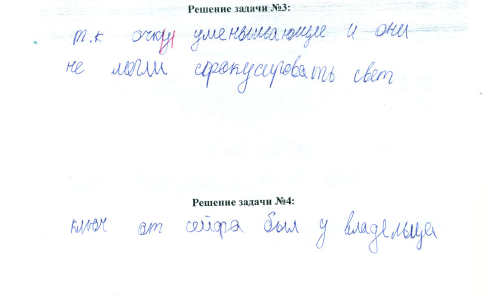 Решение задачи №3:
т.к очки уменьшающие и они
не могли сфокусировать свет
Решение задачи №4:
ключ от сейфа был у владельца